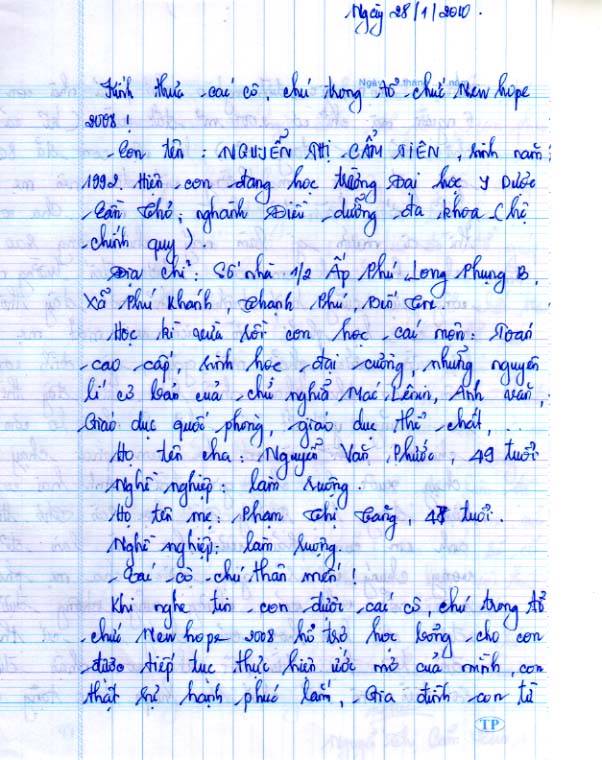 Ngày 28/1/2010.
Kính thưa các cô, chú trong tổ chức New hope
2008!
Con tên: NGUYỄN THỊ CẨM TIÊN, sinh năm:
1992. Hiện con đang học trường Đại học Y Dược
Cần Thơ, nghành Điều dưỡng đa khoa (hệ
chính quy).
Địa chỉ: Số nhà 1/2 Ấp Phú Long Phụng B,
Xã Phú Khánh, Thạnh Phú, Bến Tre.
Học kì vừa rồi con học các môn: Toán
cao cấp, sinh học đại cương, những nguyên
lí cơ bản của chủ nghĩa Mác Lênin, Anh văn,
Giáo dục quốc phòng, giáo dục thể chất, ...
Họ tên cha: Nguyễn Văn Phước, 49 tuổi
Nghề nghiệp: làm ruộng.
Họ tên mẹ: Phạm Thị Trăng, tuổi.
Nghề nghiệp: làm ruộng.
Các cô chú thân mến!
Khi nghe tin con được các cô, chú trong tổ
chức New hope 2008 hỗ trợ học bổng cho con
được tiếp tục thực hiện ước mơ của mình, con
thật sự hạnh phúc lắm, Gia đình con từ
TP